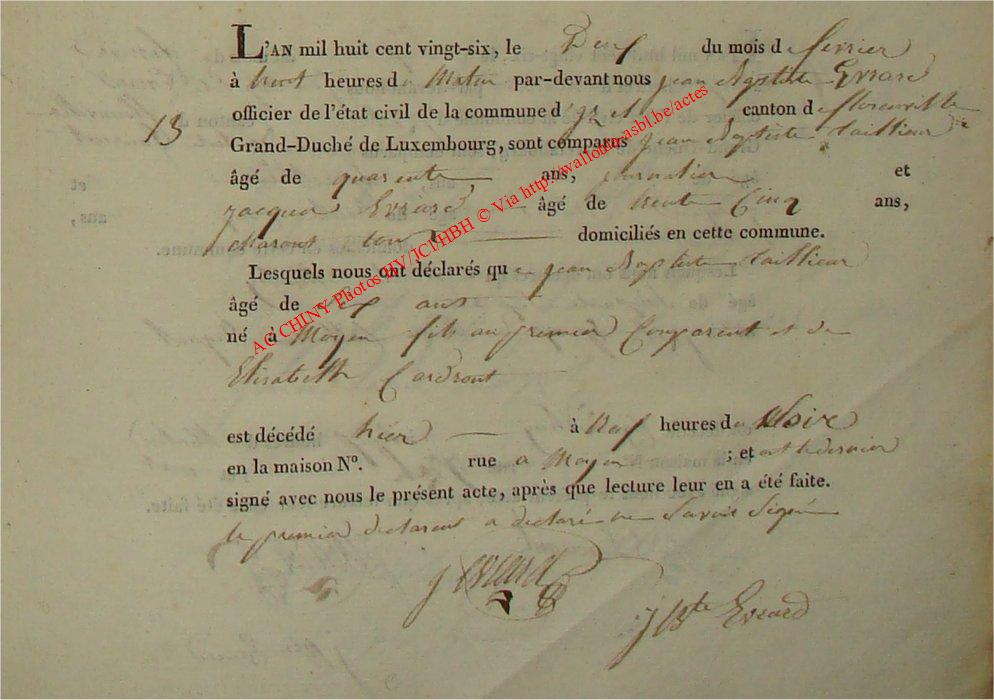 L'AN mil huit cent vingt-six, le Deux du mois de fevrier
à huit heures du Matin par-devant nous jean Baptiste Evrard
officier de l'état civil de la commune d' canton de florenville
13
Grand-Duché de Luxembourg, sont comparus jean Baptiste taillieur
âgé de quarente ans, journalier et
jacques Evrard âgé de trente Cinq ans,
domiciliés en cette commune.
Lesquels nous ont déclarés que jean Baptiste taillieur
âgé de ans
né à Moyen fils au premier Comparent et de
Elisabeth Cardront
est décédé hier à Neuf heures du Soire
en la maison N°. rue a Moyen ; et ont le dernier
signé avec nous le présent acte, après que lecture leur en a été faite.
le premier declarent a declaré ne Savoir Signé
j evrard
J Bte Evrard
AG CHINY Photos HV/JCI/HBH © Via http://wallonica.asbl.be/actes